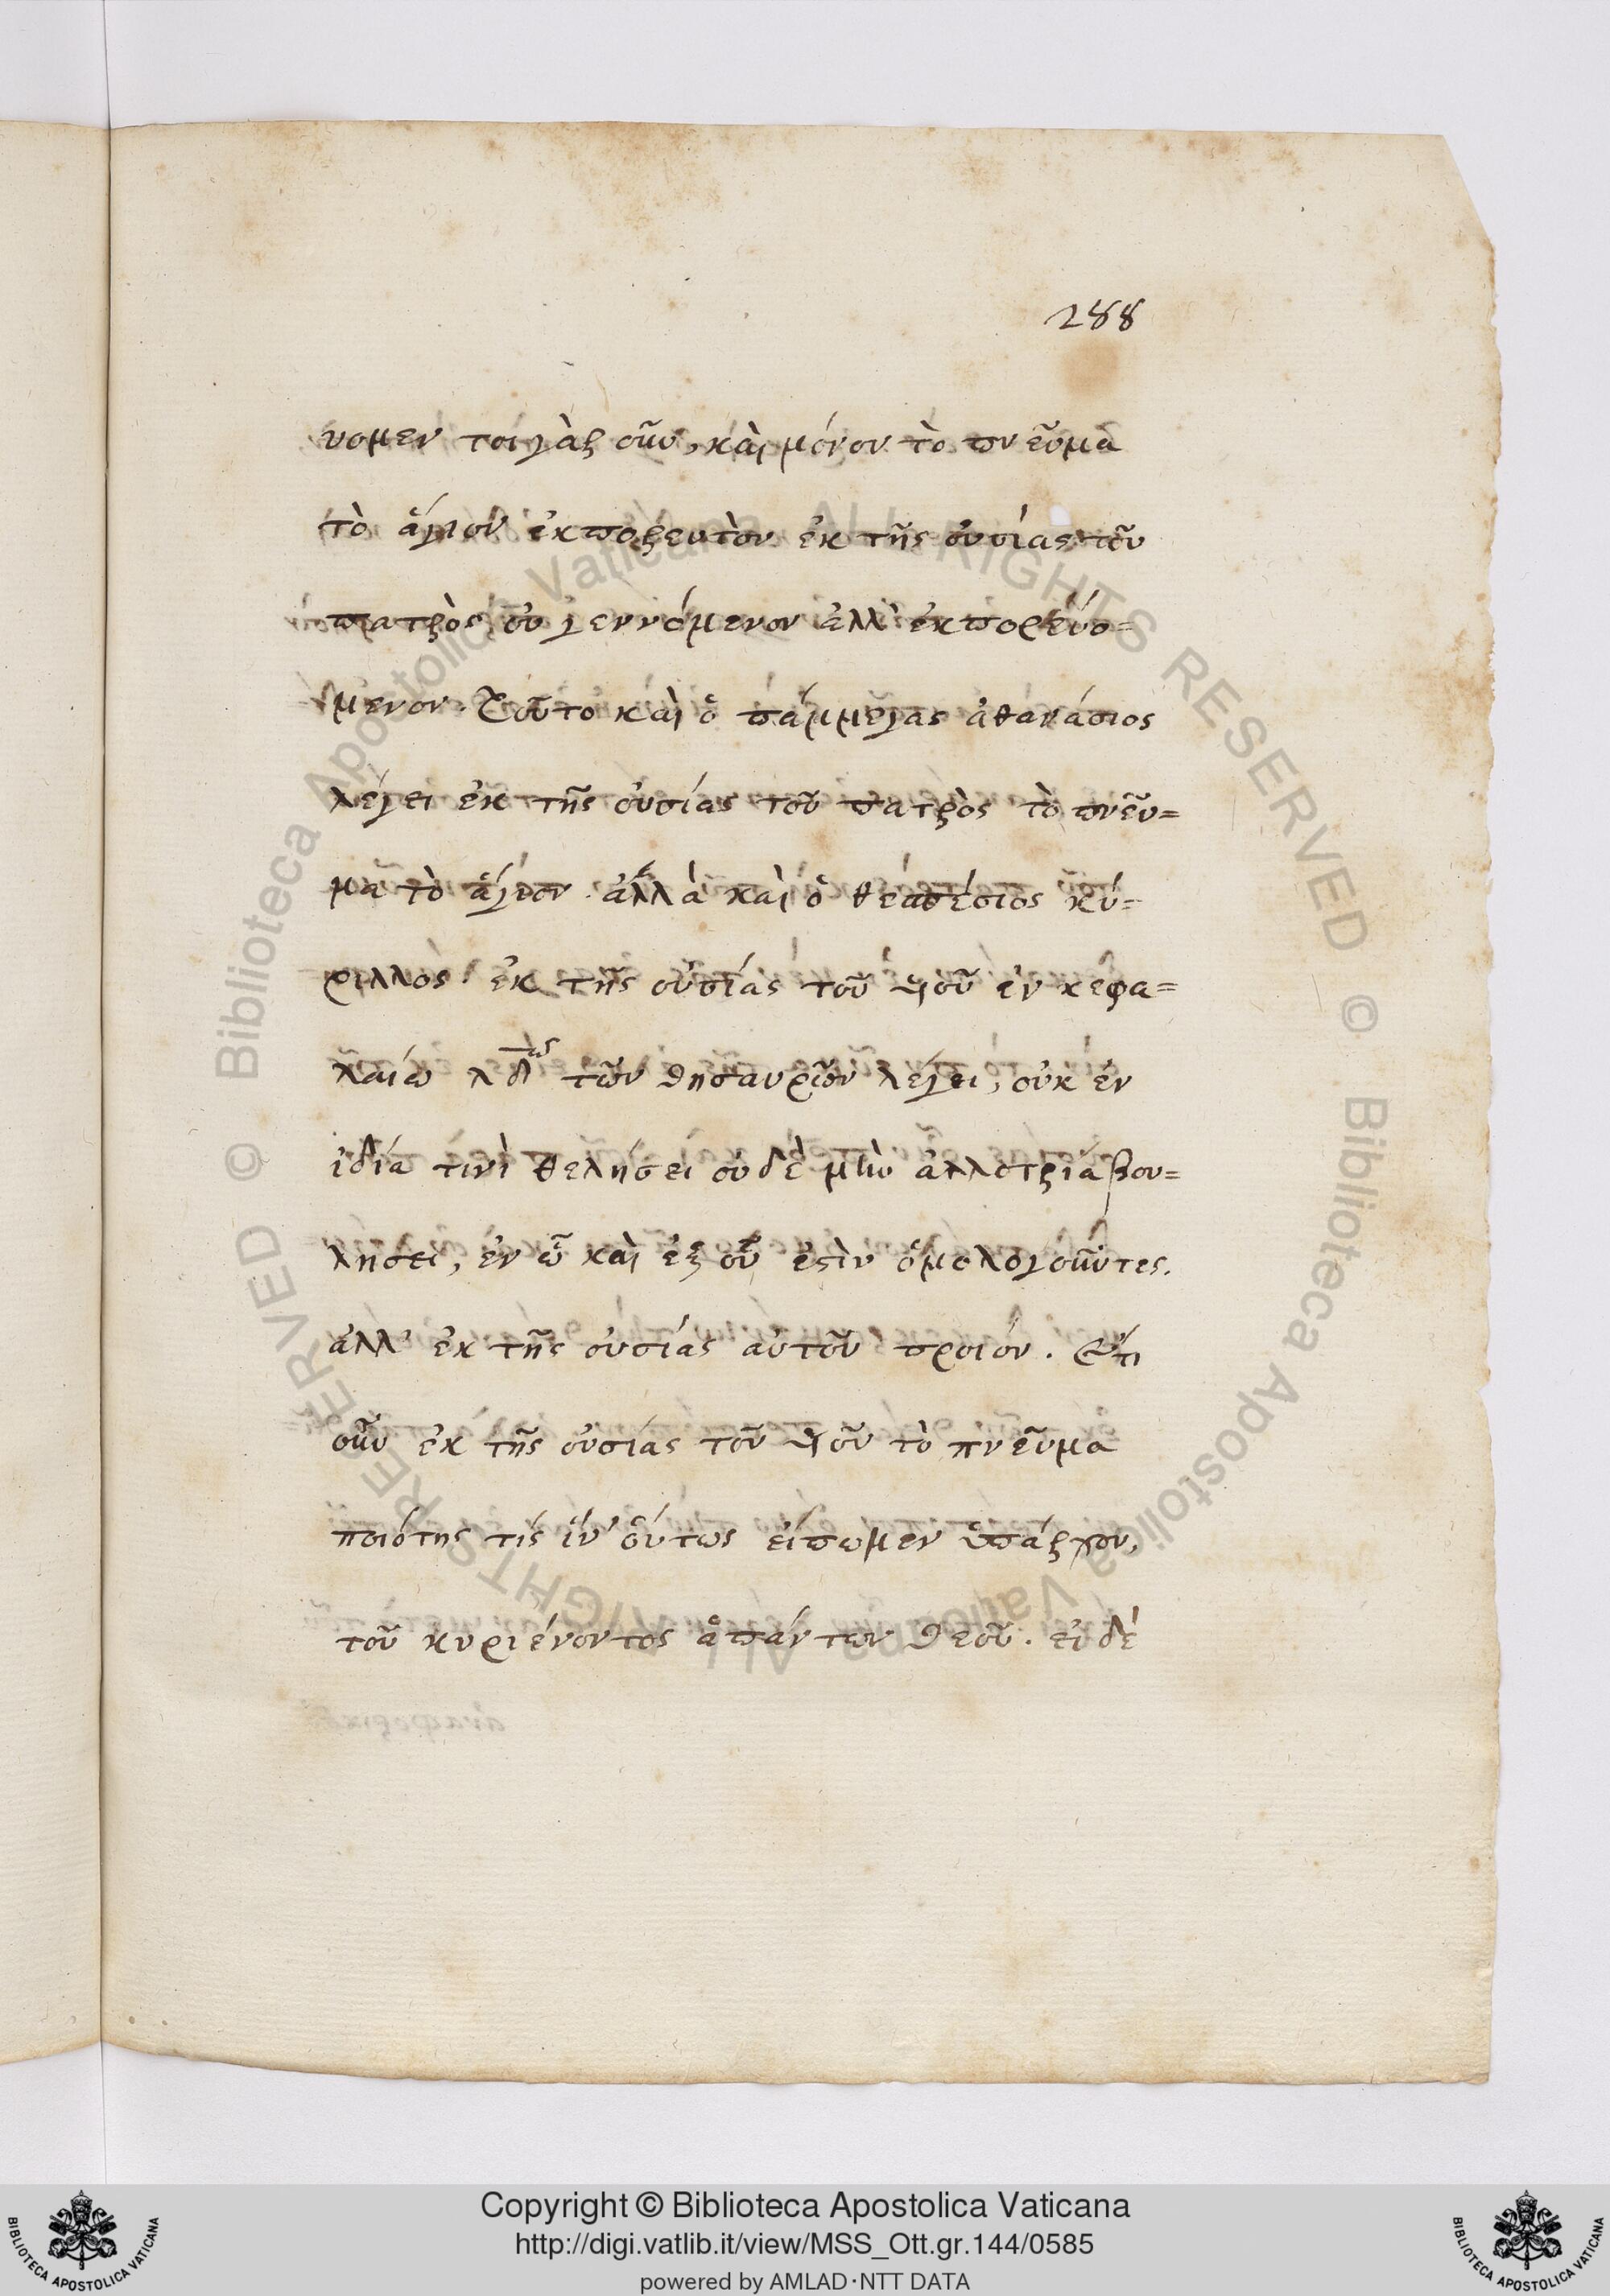 288
υομεν τοιγὰρ οὖν, καὶ μόνον τὸ πνεῦμα
τὸ ἅγιον ἐκπορευτὸν ἐκ τῆς οὐσίας τοῦ
πατρὸς οὐ γεννόμενον ἀλλ' ἐκπορευό=
μενον. Τοῦτο καὶ ὁ πάμμεγας ἀθανάσιος
λέγει ἐκ τῆς οὐσίας τοῦ πατρὸς τὸ πνεῦ=
μα τὸ ἅγιον. ἀλλὰ καὶ ὁ θεσπέσιος κύ=
ριλλος ἐκ τῆς οὐσίας τοῦ υἱοῦ ἐν κεφα=
λαίω λδω τῶν θησαυρῶν λέγει, οὐκ ἐν
ἰδία τινὶ θελήσει οὐδὲ μὴν ἀλλοτρία βου=
λήσει, ἐν ᾧ καὶ ἐξ οὗ ἐστὶν ὁμολογοῦντες.
ἀλλ' ἐκ τῆς οὐσίας αὐτοῦ προιόν. Ἔτι
οὖν ἐκ τῆς οὐσίας τοῦ υἱοῦ τὸ πνεῦμα
ποιότης τίς ἵν' οὕτως εἴπωμεν ὑπάρχον,
τοῦ κυριέυοντος ἁπάντων θεοῦ. εἰ δὲ
Copyright © Biblioteca Apostolica Vaticana
http://digi.vatlib.it/view/MSS_Ott.gr.144/0585
powered by AMLAD·NTT DATA
BIBLIOTECA APOSTOLICA VATICANA
BIBLIOTECA APOSTOLICA VATICANA
© Biblioteca Apostolica Vaticana ALL RIGHTS RESERVED
© Biblioteca Apostolica Vaticana ALL RIGHTS RESERVED